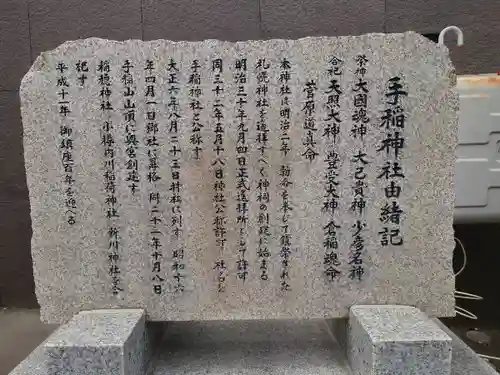 手稲神社由緒記
祭神 大國魂神 大己貴神 少彦名神
合祀 天照大神 豊受大神 倉稲魂命
菅原道真命
本神社は明治二年 勅命を奉じて鎮祭された
札幌神社を遙拝すべく神祠の創祀に始まる
明治三十年九月四日正式遙拝所として許可
同三十二年五月十八日神社公称許可 社名を
手稲神社と公称す
大正六年八月二十五日村社に列す 昭和十六
年四月一日郷社に昇格 同二十二年十月八日
手稲山山頂に奥宮創建す
稲穂神社 小樽内川稲荷神社 新川神社を合
祀す
平成十一年 御鎮座百年を迎へる